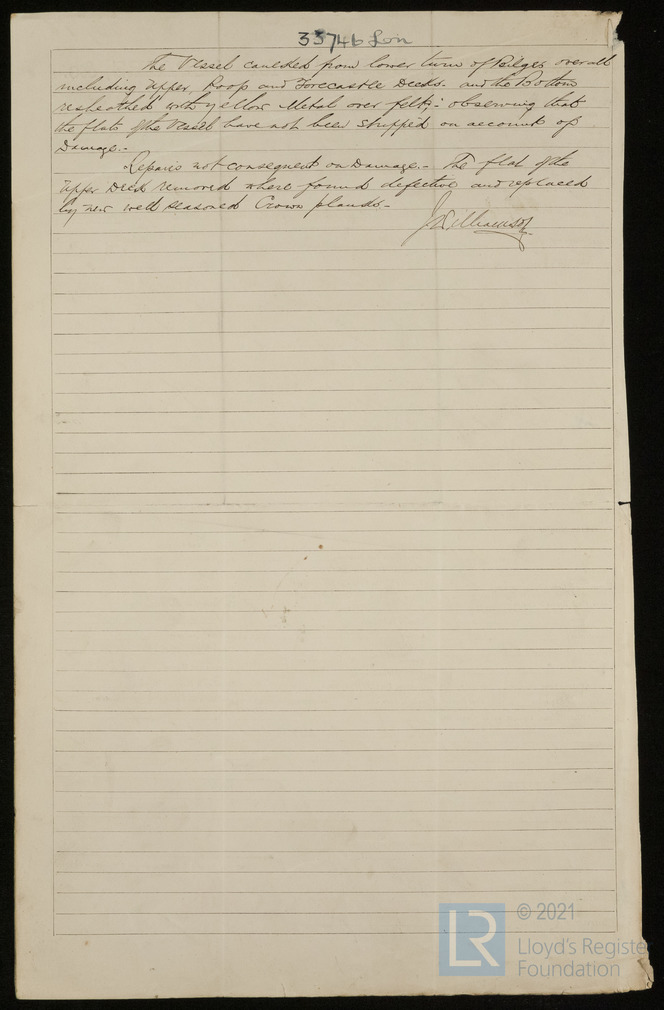 33746 Lon
The Vessel caulked from lower turn of Bilges over all
including Upper, Poop and Forecastle Decks. and the Bottom
resheathed with yellow Metal over felt; observing that
the flats of the Vessel have not been stripped on account of
Damage.-
Repairs not consequent on Damage.- The flat of the
Upper Deck removed where found defective and replaced
by new well seasoned Crown planks-
J Williamson
© 2021
Lloyd's Register
Foundation
LR